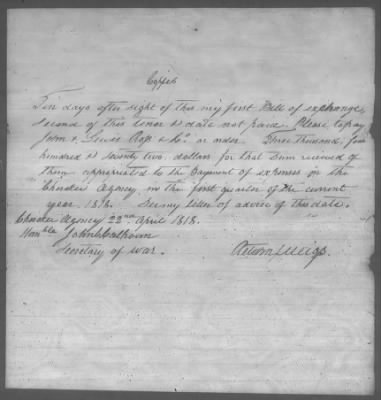 Copies
Ten days after sight of this my first Bill of exchange,
second of this tenor & date not paid. Please to pay
John & Lewis Ross & Co. or order. Three thousand, four
hundred & seventy two dollars for that sum received of
them appropriated to the payment of expenses in the
Cherokee Agency in the first quarter of the current
year 1818. Per my letter of advice of this date.
Cherokee Agency 22nd April 1818.
Honble John C Calhoun
Secretary of war. Return J Meigs.